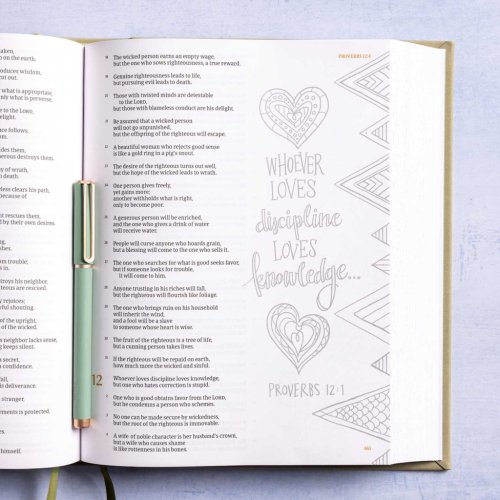 aken,
o on the earth.
oducer wisdom,
cut out.
what is appropriate,
only what is perverse.
e to the LORD,
elight.
ce follows,
om.
ides them,
destroys them.
less clears his path,
because of
rescues them,
by their own desires.
from trouble;
s in.
destroys his neighbor,
are rescued.
rejoices;
erful shouting.
of the upright,
of the wicked.
s neighbor lacks sense,
keeps silent.
a secret,
a confidence.
fall,
is deliverance.
stranger,
ements is protected.
himself.
PROVERBS 12:4
18 The wicked person earns an empty wage,
but the one who sows righteousness, a true reward.
19 Genuine righteousness leads to life,
but pursuing evil leads to death.
20 Those with twisted minds are detestable
to the LORD,
but those with blameless conduct are his delight.
21 Be assured that a wicked person
will not go unpunished,
but the offspring of the righteous will escape.
22 A beautiful woman who rejects good sense
is like a gold ring in a pig's snout.
23 The desire of the righteous turns out well,
but the hope of the wicked leads to wrath.
24 One person gives freely,
yet gains more;
another withholds what is right,
only to become poor.
25 A generous person will be enriched,
and the one who gives a drink of water
will receive water.
26 People will curse anyone who hoards grain,
but a blessing will come to the one who sells it.
27 The one who searches for what is good seeks favor,
but if someone looks for trouble,
it will come to him.
28 Anyone trusting in his riches will fall,
but the righteous will flourish like foliage.
29 The one who brings ruin on his household
will inherit the wind,
and a fool will be a slave
to someone whose heart is wise.
30 The fruit of the righteous is a tree of life,
but a cunning person takes lives.
31 If the righteous will be repaid on earth,
how much more the wicked and sinful.
12 Whoever loves discipline loves knowledge,
but one who hates correction is stupid.
2 One who is good obtains favor from the LORD,
but he condemns a person who schemes.
3 No one can be made secure by wickedness,
but the root of the righteous is immovable.
4 A wife of noble character is her husband's crown,
but a wife who causes shame
is like rottenness in his bones.
WHOEVER
LOVES
discipline
LOVES
knowledge...
PROVERBS 12:1